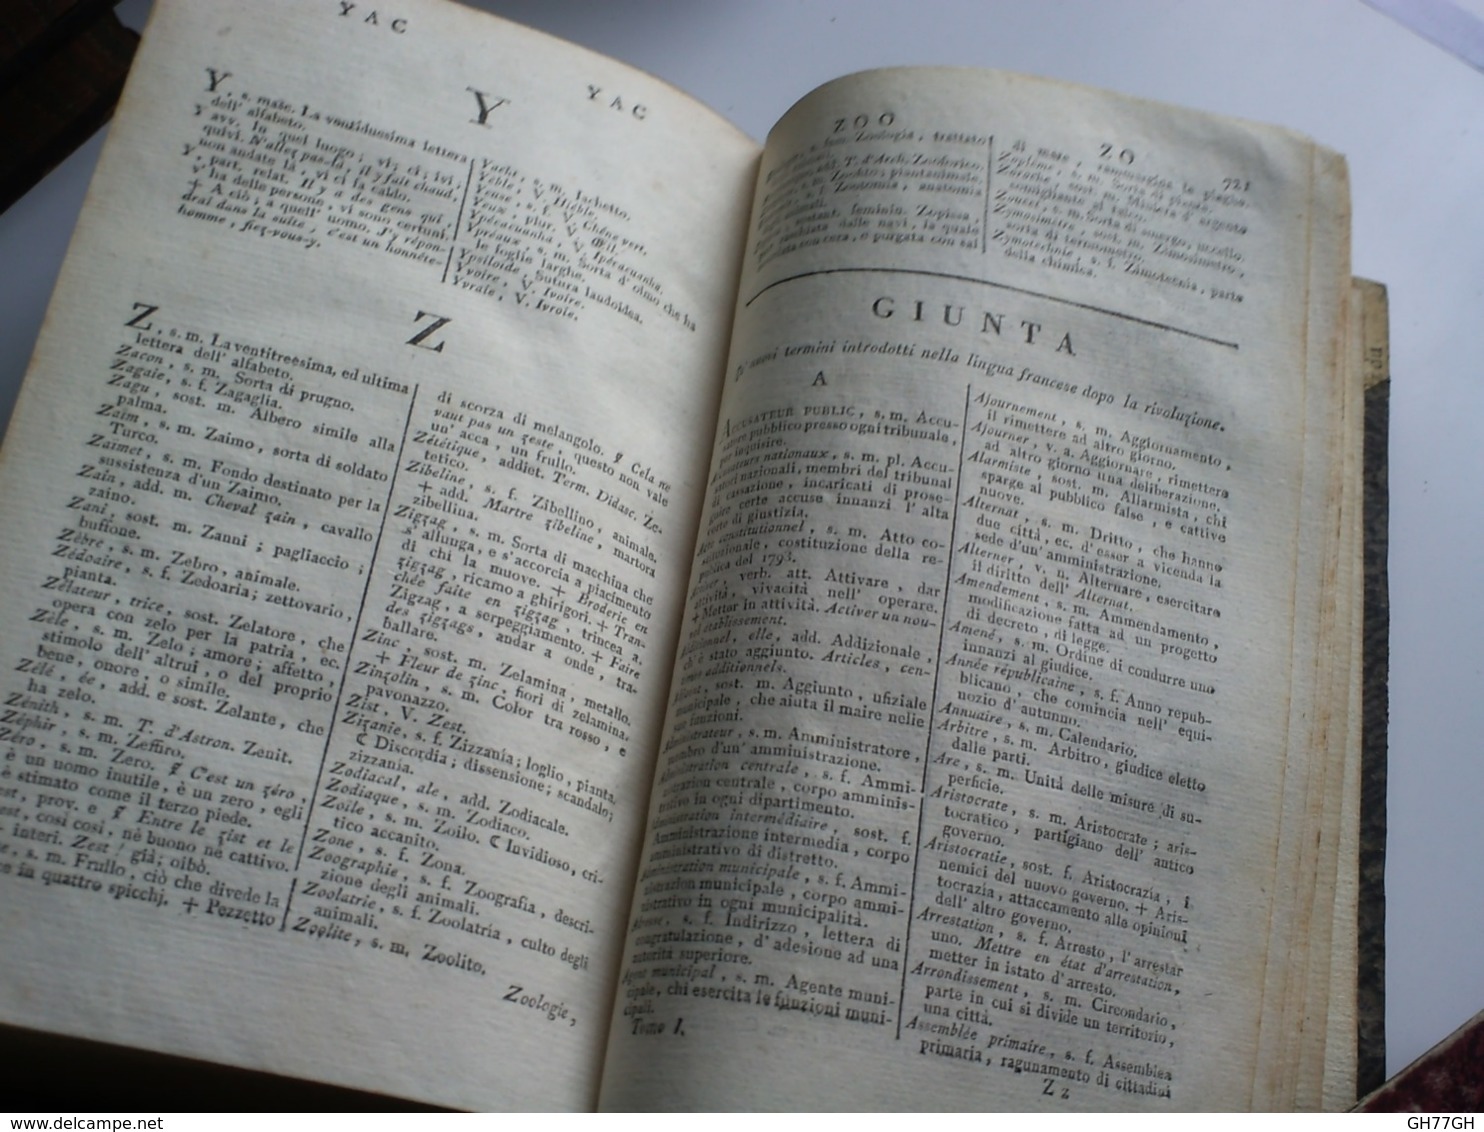 YAC
YAC
Y
Y, s. masc. La ventiduesima lettera
dell' alfabeto.
Y avv. In quel luogo; vi; ci; ivi;
quivi. N'allez pas-là, il y fait chaud,
non andate là, vi ci fa caldo.
Y, part. relat. Il y a des gens qui,
v'ha delle persone, vi sono certuni.
+ A ciò; a quell' uomo. J'y répon-
drai dans la suite; c'est un honnête-
homme, fiez-vous-y.
Yacht, s. m. Iachetto.
Yèble, V. Hièble.
Yeuse, s. f. V. Chêne vert.
Yeux, plur. V. Œil.
Ypécacuanha, V. Ipécacuanha.
Ypréaux, s. m. Sorta d' olmo che ha
le foglie larghe.
Ypsiloïde, Sutura laudoidea.
Yvoire, V. Ivoire.
Yvraie, V. Ivroie.
Z
Z, s. m. La ventitreesima, ed ultima
lettera dell' alfabeto.
Zacon, s. m. Sorta di prugno.
Zagaie, s. f. Zagaglia.
Zagu, sost. m. Albero simile alla
palma.
Zaim, s. m. Zaimo, sorta di soldato
Turco.
Zaimet, s. m. Fondo destinato per la
sussistenza d'un Zaimo.
Zain, add. m. Cheval zain, cavallo
zaino.
Zani, sost. m. Zanni; pagliaccio;
buffone.
Zèbre, s. m. Zebro, animale.
Zédoaire, s. f. Zedoaria; zettovario,
pianta.
Zélateur, trice, sost. Zelatore, che
opera con zelo per la patria, ec.
Zèle, s. m. Zelo; amore; affetto,
stimolo dell' altrui, o del proprio
bene, onore, o simile.
Zélé, ée, add. e sost. Zelante, che
ha zelo.
Zénith, s. m. T. d'Astron. Zenit.
Zéphir, s. m. Zeffiro.
Zéro, s. m. Zero. ₰ C'est un zéro,
è un uomo inutile, è un zero, egli
è stimato come il terzo piede.
est, prov. e ₰ Entre le zist et le
est, così così, nè buono nè cattivo.
interi. Zest! già; oibò.
e, s. m. Frullo, ciò che divede la
e in quattro spicchj. + Pezzetto
di scorza di melangolo. ₰ Cela ne
vaut pas un zeste, questo non vale
un' acca, un frullo.
Zététique, addiet. Term. Didasc. Ze-
tetico.
Zibeline, s. f. Zibellino, animale.
+ add. Martre zibeline, martora
zibellina.
Zigzag, s. m. Sorta di macchina che
s'allunga, e s'accorcia a piacimento
di chi la muove. + Broderie en
zigzag, ricamo a ghirigori. + Tran-
chée faite en zigzag, trincea a.
Zigzag, a serpeggiamento. + Faire
des zigzags, andar a onde, tra-
ballare.
Zinc, sost. m. Zelamina, metallo.
+ Fleur de zinc, fiori di zelamina.
Zinzolin, s. m. Color tra rosso, e
pavonazzo.
Zist, V. Zest.
Zizanie, s. f. Zizzania; loglio, pianta.
( Discordia; dissensione; scandalo;
zizzania.
Zodiacal, ale, add. Zodiacale.
Zodiaque, s. m. Zodiaco.
Zoile, s. m. Zoilo. ( Invidioso, cri-
tico accanito.
Zone, s. f. Zona.
Zoographie, s. f. Zoografia, descri-
zione degli animali.
Zoolatrie, s. f. Zoolatria, culto degli
animali.
Zoolite, s. m. Zoolito.
Zoologie,
ZOO
ZO
721
Zoologia, trattato
add. T. d'Arch. Zooforico.
Zoofito; piantanimale.
s. f. Zootomia, anatomia
animali.
sostant. feminin. Zopissa,
cambiata dalle navi, la quale
con cera, o purgata con sal
di mare, rammargina le piaghe.
Zoplème, s. m. Sorta di pianta.
Zoroche, sost. m. Miniera d' argento
somigliante al talco.
Zoucet, s. m. Sorta di smergo, uccello.
Zymosimètre, sost. m. Zimosimetro,
sorta di termometro.
Zymotechnie, s. f. Zimotecnia, parte
della chimica.
GIUNTA
Di nuovi termini introdotti nella lingua francese dopo la rivoluzione.
A
ACCUSATEUR PUBLIC, s. m. Accu-
satore pubblico presso ogni tribunale,
per inquisire.
Accusateurs nationaux, s. m. pl. Accu-
satori nazionali, membri del tribunal
di cassazione, incaricati di prose-
guire certe accuse innanzi l' alta
corte di giustizia.
Acte constitutionnel, s. m. Atto co-
stituzionale, costituzione della re-
pubblica del 1793.
Activer, verb. att. Attivare, dar
attività, vivacità nell' operare.
+ Metter in attività. Activer un nou-
vel établissement.
Additionnel, elle, add. Addizionale,
ch'è stato aggiunto. Articles, cen-
times additionnels.
Adjoint, sost. m. Aggiunto, ufiziale
municipale, che aiuta il maire nelle
sue funzioni.
Administrateur, s. m. Amministratore,
membro d'un' amministrazione.
Administration centrale, s. f. Ammi-
nistrazion centrale, corpo amminis-
trativo in ogni dipartimento.
Administration intermédiaire, sost. f.
Amministrazione intermedia, corpo
amministrativo di distretto.
Administration municipale, s. f. Ammi-
nistrazion municipale, corpo ammi-
nistrativo in ogni municipalità.
Adresse, s. f. Indirizzo, lettera di
congratulazione, d' adesione ad una
autorità superiore.
Agent municipal, s. m. Agente muni-
cipale, chi esercita le funzioni muni-
cipali.
Tomo I.
Ajournement, s. m. Aggiornamento,
il rimettere ad altro giorno.
Ajourner, v. a. Aggiornare, rimettere
ad altro giorno una deliberazione.
Alarmiste, sost. m. Allarmista, chi
sparge al pubblico false, e cattive
nuove.
Alternat, s. m. Dritto, che hanno
due città, ec. d' esser a vicenda la
sede d'un' amministrazione.
Alterner, v. n. Alternare, esercitare
il diritto dell' Alternat.
Amendement, s. m. Ammendamento,
modificazione fatta ad un progetto
di decreto, di legge.
Amené, s. m. Ordine di condurre uno
innanzi al giudice.
Année républicaine, s. f. Anno repub-
blicano, che comincia nell' equi-
nozio d' autunno.
Annuaire, s. m. Calendario.
Arbitre, s. m. Arbitro, giudice eletto
dalle parti.
Are, s. m. Unità delle misure di su-
perficie.
Aristocrate, s. m. Aristocrate; aris-
tocratico, partigiano dell' antico
governo.
Aristocratie, sost. f. Aristocrazia, i
nemici del nuovo governo. + Aris-
tocrazia, attaccamento alle opinioni
dell' altro governo.
Arrestation, s. f. Arresto, l' arrestar
uno. Mettre en état d'arrestation,
metter in istato d'arresto.
Arrondissement, s. m. Circondario,
parte in cui si divide un territorio,
una città.
Assemblée primaire, s. f. Assemblea
primaria, ragunamento di cittadini
Z z
GH77GH